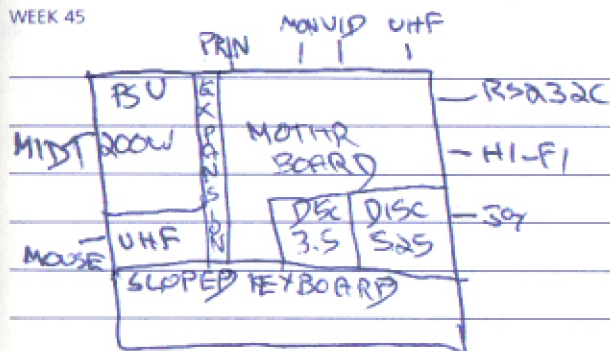 WEEK 45
PRIN MON VID UHF
PSU
200W
EXPANSION
MOTHR
BOARD
RS232C
MIDI
HI-FI
DISC
3.5
DISC
525
JOY
UHF
MOUSE
SLOPED KEYBOARD